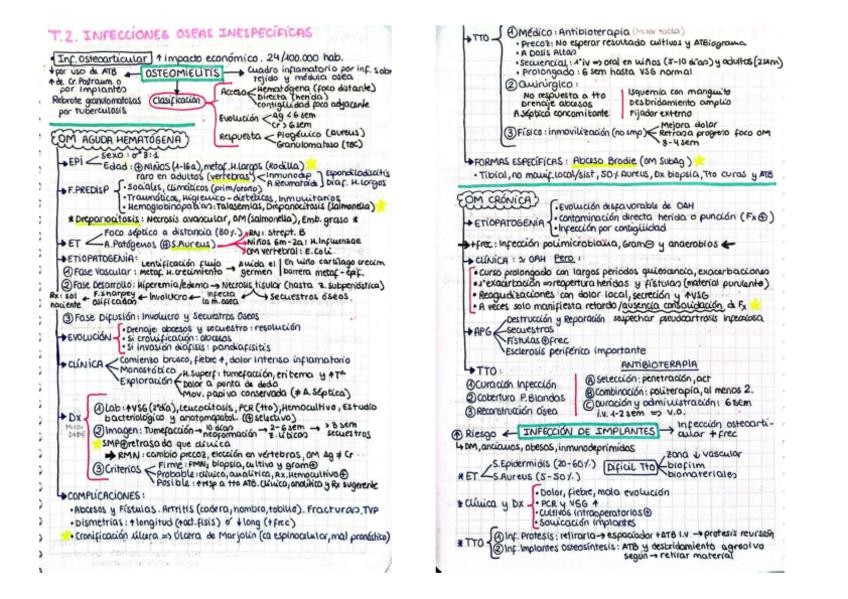 T.2. INFECCIONES OSEAS INESPECÍFICAS
Inf. osteoarticular ↑ impacto económico. 24/100.000 hab.
↓ por uso de ATB
↑ de Cr. Postraum. o por implantes
Rebrote granulomatosas por tuberculosis
OSTEOMIELITIS → Cuadro inflamatorio por inf. sobre tejido y médula ósea
Clasificación
Acceso
Hematógena (foco distante)
Directa (herida)
Contigüidad foco adyacente
Evolución
Ag < 6 sem
Cr > 6 sem
Respuesta
Piogénica (aureus)
Granulomatosa (TBC)
OM AGUDA HEMATÓGENA
EPI
Sexo: ♂ 3:1
Edad: ⊕ Niños (1-16a), metaf. H. largos (Rodilla)
raro en adultos (vertebras)
Inmunodep → Espondilodiscitis
A. Reumatoide → Diaf. H. largos
F. PREDISP
• Sociales, climáticos (prim/otoño)
• Traumáticos, Higiénico-dietéticos, Inmunitarios
• Hemoglobinopatías: Talasemias, Drepanocitosis (salmonella)
* Drepanocitosis: Necrosis avascular, OM (salmonella), Emb. grasa *
ET
Foco séptico a distancia (80%)
A. Patógenos (⊕ S. Aureus)
RN: Strept. B
Niños 6m-2a: H. Influenzae
OM vertebral: E. Coli
ETIOPATOGENIA:
① Fase Vascular: Lentificación flujo metaf. H. crecimiento → anida el germen | En niño cartílago crecim barrera metaf-epif.
② Fase Desarrollo: Hiperemia/edema → Necrosis tisular (hasta z. subperióstica)
Rx: sol naciente ← F. sharpey osificadas ← Involucro ← Infecta la m. ósea ← Secuestros óseos.
③ Fase Difusión: Involucro y Secuestros Óseos
EVOLUCIÓN
• Drenaje abscesos y secuestro: resolución
• Si cronificación: abscesos
• Si invasión diáfisis: pandiafisitis
CLÍNICA
Comienzo brusco, fiebre ↑, dolor intenso inflamatorio
Monostótico
Exploración
H. Superf: tumefacción, eritema y ↑ Tª
Dolor a punta de dedo
Mov. pasiva conservada (≠ A. Séptica)
Dx
① Lab: ↑VSG (2º día), leucocitosis, PCR (tto), Hemocultivo, Estudio bacteriológico y anatomopatol. (⊕ selectivo)
② Imagen: Tumefacción → 10 días neoformación → 2-6 sem z. líticas → > 8 sem secuestros
SMP ⊕ retrasado que clínica
RMN: cambio precoz, elección en vértebras, OM Ag ≠ Cr
③ Criterios
Firme: PMN, biopsia, cultivo y gram ⊕
Probable: clínica, analítica, Rx. Hemocultivo ⊕
Posible: + resp a tto ATB. Clínica, analítica y Rx sugerente
COMPLICACIONES:
• Abscesos y Fístulas. Artritis (cadera, hombro, tobillo). Fracturas, TVP
• Dismetrías: ↑ longitud (+act. fisis) o ↓ long (+ frec)
• Cronificación úlcera ⇒ Úlcera de Marjolin (ca espinocelular, mal pronóstico)
TTO
① Médico: Antibioterapia
• Precoz: No esperar resultado cultivos y ATBiograma
• A Dosis Altas
• Secuencial: 1º iv → oral en niños (5-10 días) y adultos (2 sem)
• Prolongado: 6 sem hasta VSG normal
② Quirúrgico:
No respuesta a tto
Drenaje abscesos
A. Séptica concomitante
Isquemia con manguito
Desbridamiento amplio
Fijador externo
③ Físico: inmovilización (no smp)
Mejora dolor
Retrasa progreso foco OM
3-4 sem
FORMAS ESPECÍFICAS: Absceso Brodie (OM SubAg)
• Tibial, no manif. local/sist, 50% Aureus, Dx biopsia, Tto curas y ATB
OM CRÓNICA
ETIOPATOGENIA
• Evolución desfavorable de OAH
• Contaminación directa herida o punción (Fx ⊕)
• Infección por contigüidad
+frec: Infección polimicrobiana, Gram⊖ y anaerobios
CLÍNICA: ≃ OAH Pero:
• Curso prolongado con largos periodos quiescencia, exacerbaciones
• 1ª exacerbación ⇒ reapertura heridas y fístulas (material purulento)
• Reagudizaciones con dolor local, secreción y ↑VSG
• A veces solo manifiesta retardo/ausencia consolidación d Fx
APG
Destrucción y Reparación
Secuestros
Fístulas ⊕ frec
Esclerosis periférica importante
sospechar pseudoartrosis infecciosa
TTO:
① Curación Infección
② Cobertura P. Blandas
③ Reconstrucción ósea
ANTIBIOTERAPIA
Ⓐ Selección: penetración, act
Ⓑ Combinación: politerapia, al menos 2.
Ⓒ Duración y administración: 6 sem
i.v. 1-2 sem ⇒ v.o.
↑ Riesgo ← INFECCIÓN DE IMPLANTES → Infección osteoarticular + frec
DM, ancianos, obesos, inmunodeprimidos
* ET
S. Epidermidis (20-60%)
S. Aureus (5-50%)
Difícil Tto
zona ↓ vascular
biofilm
biomateriales
* Clínica y Dx
• Dolor, fiebre, mala evolución
• PCR y VSG ↑
• Cultivos intraoperatorios ⊕
• Sonicación implantes
* TTO
① Inf. Prótesis: retirarla → espaciador + ATB i.v → prótesis revisión
② Inf. Implantes osteosíntesis: ATB y desbridamiento agresivo
según → retirar material